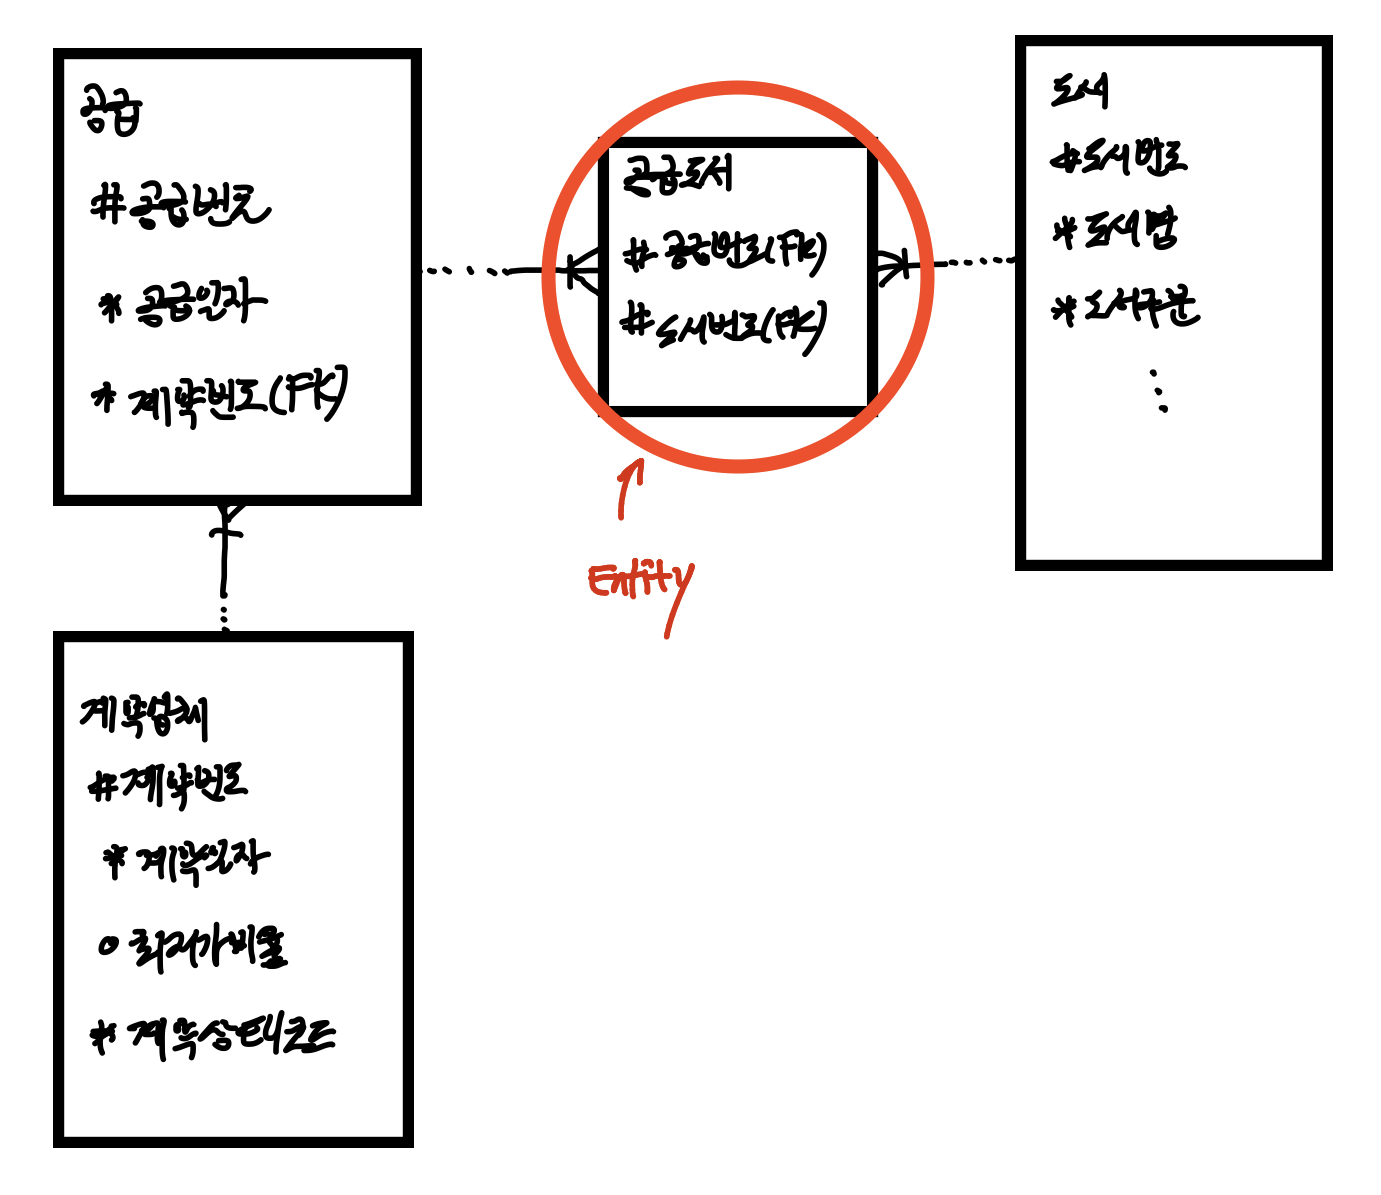 공급
#공급번호
* 공급일자
* 계약번호(FK)
공급도서
# 공급번호(FK)
# 도서번호(FK)
도서
#도서번호
* 도서명
* 도서구분
...
Entity
계약업체
#계약번호
* 계약일자
o 최저가비율
* 계약상태코드